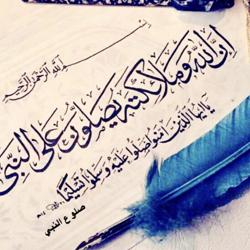 بسم الله الرحمن الرحيم
إن الله وملائكته يصلون على النبي
يا أيها الذين آمنوا صلوا عليه وسلموا تسليما
صلو ع النبي